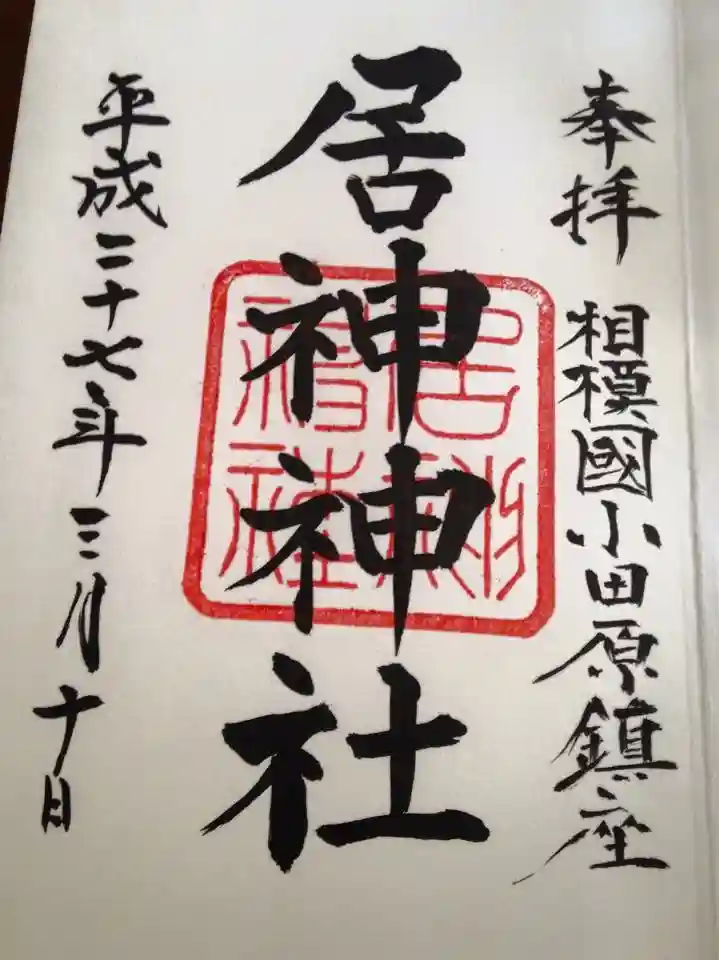 奉拝 相模國小田原鎮座
居神神社
平成二十七年三月十日